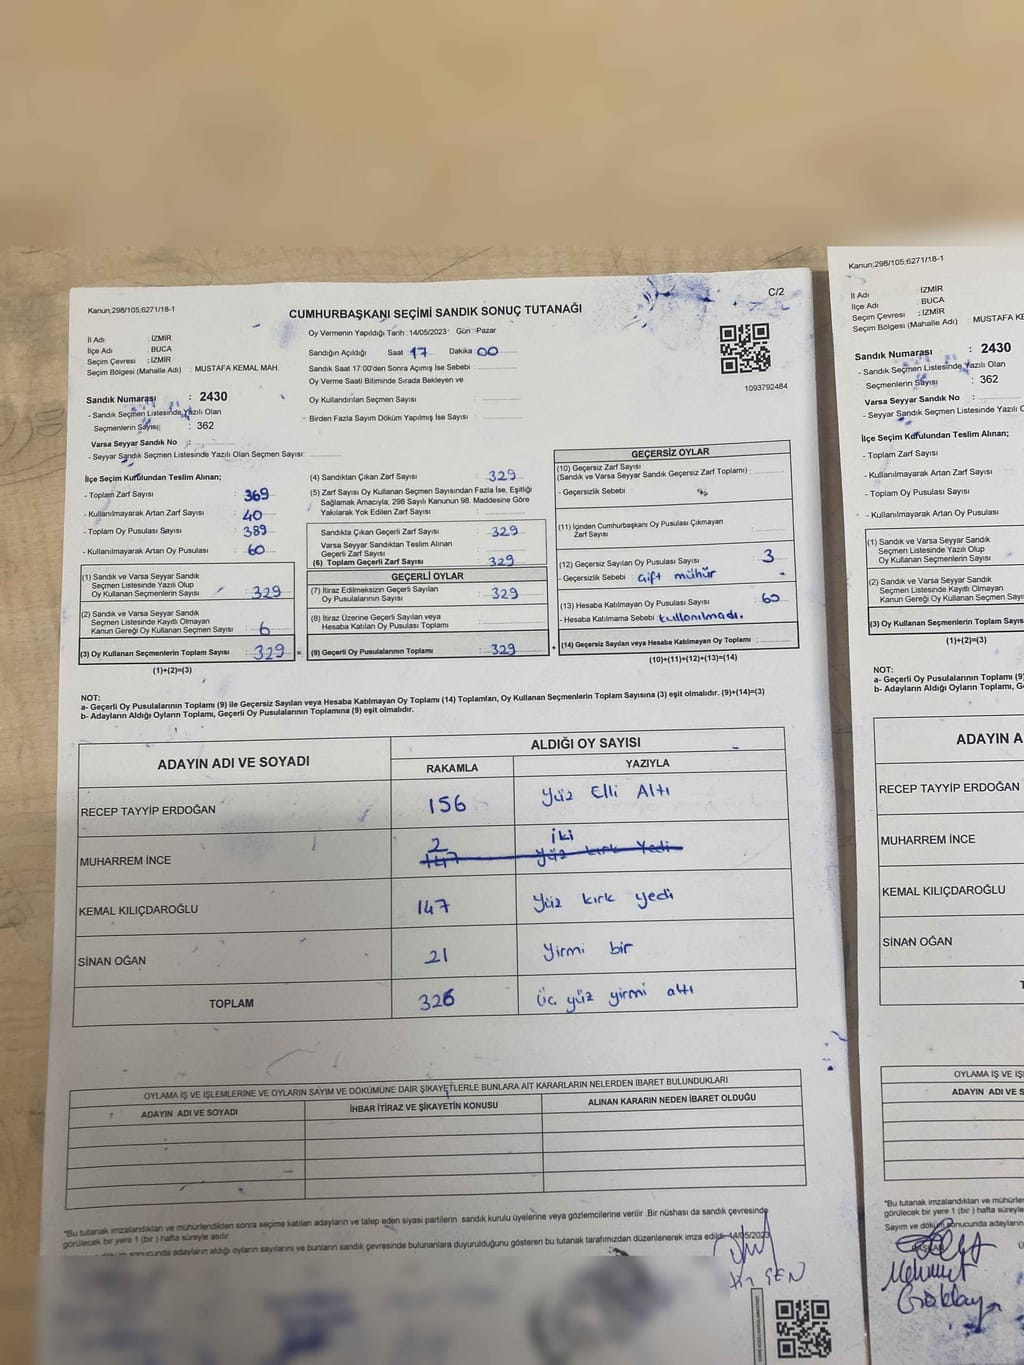 Kanun;298/105;6271/18-1
C/2
CUMHURBAŞKANI SEÇİMİ SANDIK SONUÇ TUTANAĞI
İl Adı : İZMİR
İlçe Adı : BUCA
Seçim Çevresi : İZMİR
Seçim Bölgesi (Mahalle Adı) : MUSTAFA KEMAL MAH.
Oy Vermenin Yapıldığı Tarih : 14/05/2023 Gün : Pazar
Sandığın Açıldığı Saat 17 Dakika 00
Sandık Saat 17:00'den Sonra Açımış İse Sebebi :
Oy Verme Saati Bitiminde Sırada Bekleyen ve
Oy Kullandırılan Seçmen Sayısı :
Birden Fazla Sayım Döküm Yapılmış İse Sayısı :
1093792484
Sandık Numarası : 2430
- Sandık Seçmen Listesinde Yazılı Olan
Seçmenlerin Sayısı : 362
Varsa Seyyar Sandık No :
- Seyyar Sandık Seçmen Listesinde Yazılı Olan Seçmen Sayısı:
İlçe Seçim Kurulundan Teslim Alınan;
- Toplam Zarf Sayısı : 369
- Kullanılmayarak Artan Zarf Sayısı : 40
- Toplam Oy Pusulası Sayısı : 389
- Kullanılmayarak Artan Oy Pusulası : 60
(1) Sandık ve Varsa Seyyar Sandık
Seçmen Listesinde Yazılı Olup
Oy Kullanan Seçmenlerin Sayısı : 329
(2) Sandık ve Varsa Seyyar Sandık
Seçmen Listesinde Kayıtlı Olmayan
Kanun Gereği Oy Kullanan Seçmen Sayısı : 6
(3) Oy Kullanan Seçmenlerin Toplam Sayısı : 329 =
(1)+(2)=(3)
(4) Sandıktan Çıkan Zarf Sayısı : 329
(5) Zarf Sayısı Oy Kullanan Seçmen Sayısından Fazla İse, Eşitliği
Sağlamak Amacıyla; 298 Sayılı Kanunun 98. Maddesine Göre
Yakılarak Yok Edilen Zarf Sayısı :
Sandıkta Çıkan Geçerli Zarf Sayısı : 329
Varsa Seyyar Sandıktan Teslim Alınan
Geçerli Zarf Sayısı :
(6) Toplam Geçerli Zarf Sayısı : 329
GEÇERLİ OYLAR
(7) İtiraz Edilmeksizin Geçerli Sayılan
Oy Pusulalarının Sayısı : 329
(8) İtiraz Üzerine Geçerli Sayılan veya
Hesaba Katılan Oy Pusulası Toplamı :
(9) Geçerli Oy Pusulalarının Toplamı : 329 +
GEÇERSİZ OYLAR
(10) Geçersiz Zarf Sayısı
(Sandık ve Varsa Seyyar Sandık Geçersiz Zarf Toplamı) :
- Geçersizlik Sebebi :
(11) İçinden Cumhurbaşkanı Oy Pusulası Çıkmayan
Zarf Sayısı :
(12) Geçersiz Sayılan Oy Pusulası Sayısı : 3
- Geçersizlik Sebebi : Çift mühür
(13) Hesaba Katılmayan Oy Pusulası Sayısı : 60
- Hesaba Katılmama Sebebi : kullanılmadı.
(14) Geçersiz Sayılan veya Hesaba Katılmayan Oy Toplamı :
(10)+(11)+(12)+(13)=(14)
NOT:
a- Geçerli Oy Pusulalarının Toplamı (9) ile Geçersiz Sayılan veya Hesaba Katılmayan Oy Toplamı (14) Toplamları, Oy Kullanan Seçmenlerin Toplam Sayısına (3) eşit olmalıdır. (9)+(14)=(3)
b- Adayların Aldığı Oyların Toplamı, Geçerli Oy Pusulalarının Toplamına (9) eşit olmalıdır.
ADAYIN ADI VE SOYADI
ALDIĞI OY SAYISI
RAKAMLA YAZIYLA
RECEP TAYYİP ERDOĞAN 156 Yüz Elli Altı
MUHARREM İNCE 2 iki
147 yüz kırk Yedi
KEMAL KILIÇDAROĞLU 147 Yüz kırk yedi
SİNAN OĞAN 21 Yirmi bir
TOPLAM 326 Üç yüz yirmi altı
OYLAMA İŞ VE İŞLEMLERİNE VE OYLARIN SAYIM VE DÖKÜMÜNE DAİR ŞİKAYETLERLE BUNLARA AİT KARARLARIN NELERDEN İBARET BULUNDUKLARI
ADAYIN ADI VE SOYADI İHBAR İTİRAZ VE ŞİKAYETİN KONUSU ALINAN KARARIN NEDEN İBARET OLDUĞU
*Bu tutanak imzalandıktan ve mühürlendikten sonra seçime katılan adayların ve talep eden siyasi partilerin sandık kurulu üyelerine veya gözlemcilerine verilir .Bir nüshası da sandık çevresinde
görülecek bir yere 1 (bir ) hafta süreyle asılır
sonucunda adayların aldığı oyların sayılarını ve bunların sandık çevresinde bulunanlara duyurulduğunu gösteren bu tutanak tarafımızdan düzenlenerek imza edildi. 14/05/2023
Kanun;298/105;6271/18-1
İl Adı : İZMİR
İlçe Adı : BUCA
Seçim Çevresi : İZMİR
Seçim Bölgesi (Mahalle Adı) : MUSTAFA KE
Sandık Numarası : 2430
- Sandık Seçmen Listesinde Yazılı Olan
Seçmenlerin Sayısı : 362
Varsa Seyyar Sandık No :
- Seyyar Sandık Seçmen Listesinde Yazılı Olan Seçmen
İlçe Seçim Kurulundan Teslim Alınan;
- Toplam Zarf Sayısı
- Kullanılmayarak Artan Zarf Sayısı
- Toplam Oy Pusulası Sayısı
- Kullanılmayarak Artan Oy Pusulası
(1) Sandık ve Varsa Seyyar Sandık
Seçmen Listesinde Yazılı Olup
Oy Kullanan Seçmenlerin Sayısı
(2) Sandık ve Varsa Seyyar Sandık
Seçmen Listesinde Kayıtlı Olmayan
Kanun Gereği Oy Kullanan Seçmen Sayıs
(3) Oy Kullanan Seçmenlerin Toplam Sayıs
(1)+(2)=(3)
NOT:
a- Geçerli Oy Pusulalarının Toplamı (9)
b- Adayların Aldığı Oyların Toplamı, G
ADAYIN A
RECEP TAYYİP ERDOĞAN
MUHARREM İNCE
KEMAL KILIÇDAROĞLU
SİNAN OĞAN
T
OYLAMA İŞ VE İŞ
ADAYIN ADI VE S
*Bu tutanak imzalandıktan ve mühürlen
görülecek bir yere 1 (bir ) hafta süreyle
Sayım ve döküm sonucunda adayların
BAŞKAN
Mehmet